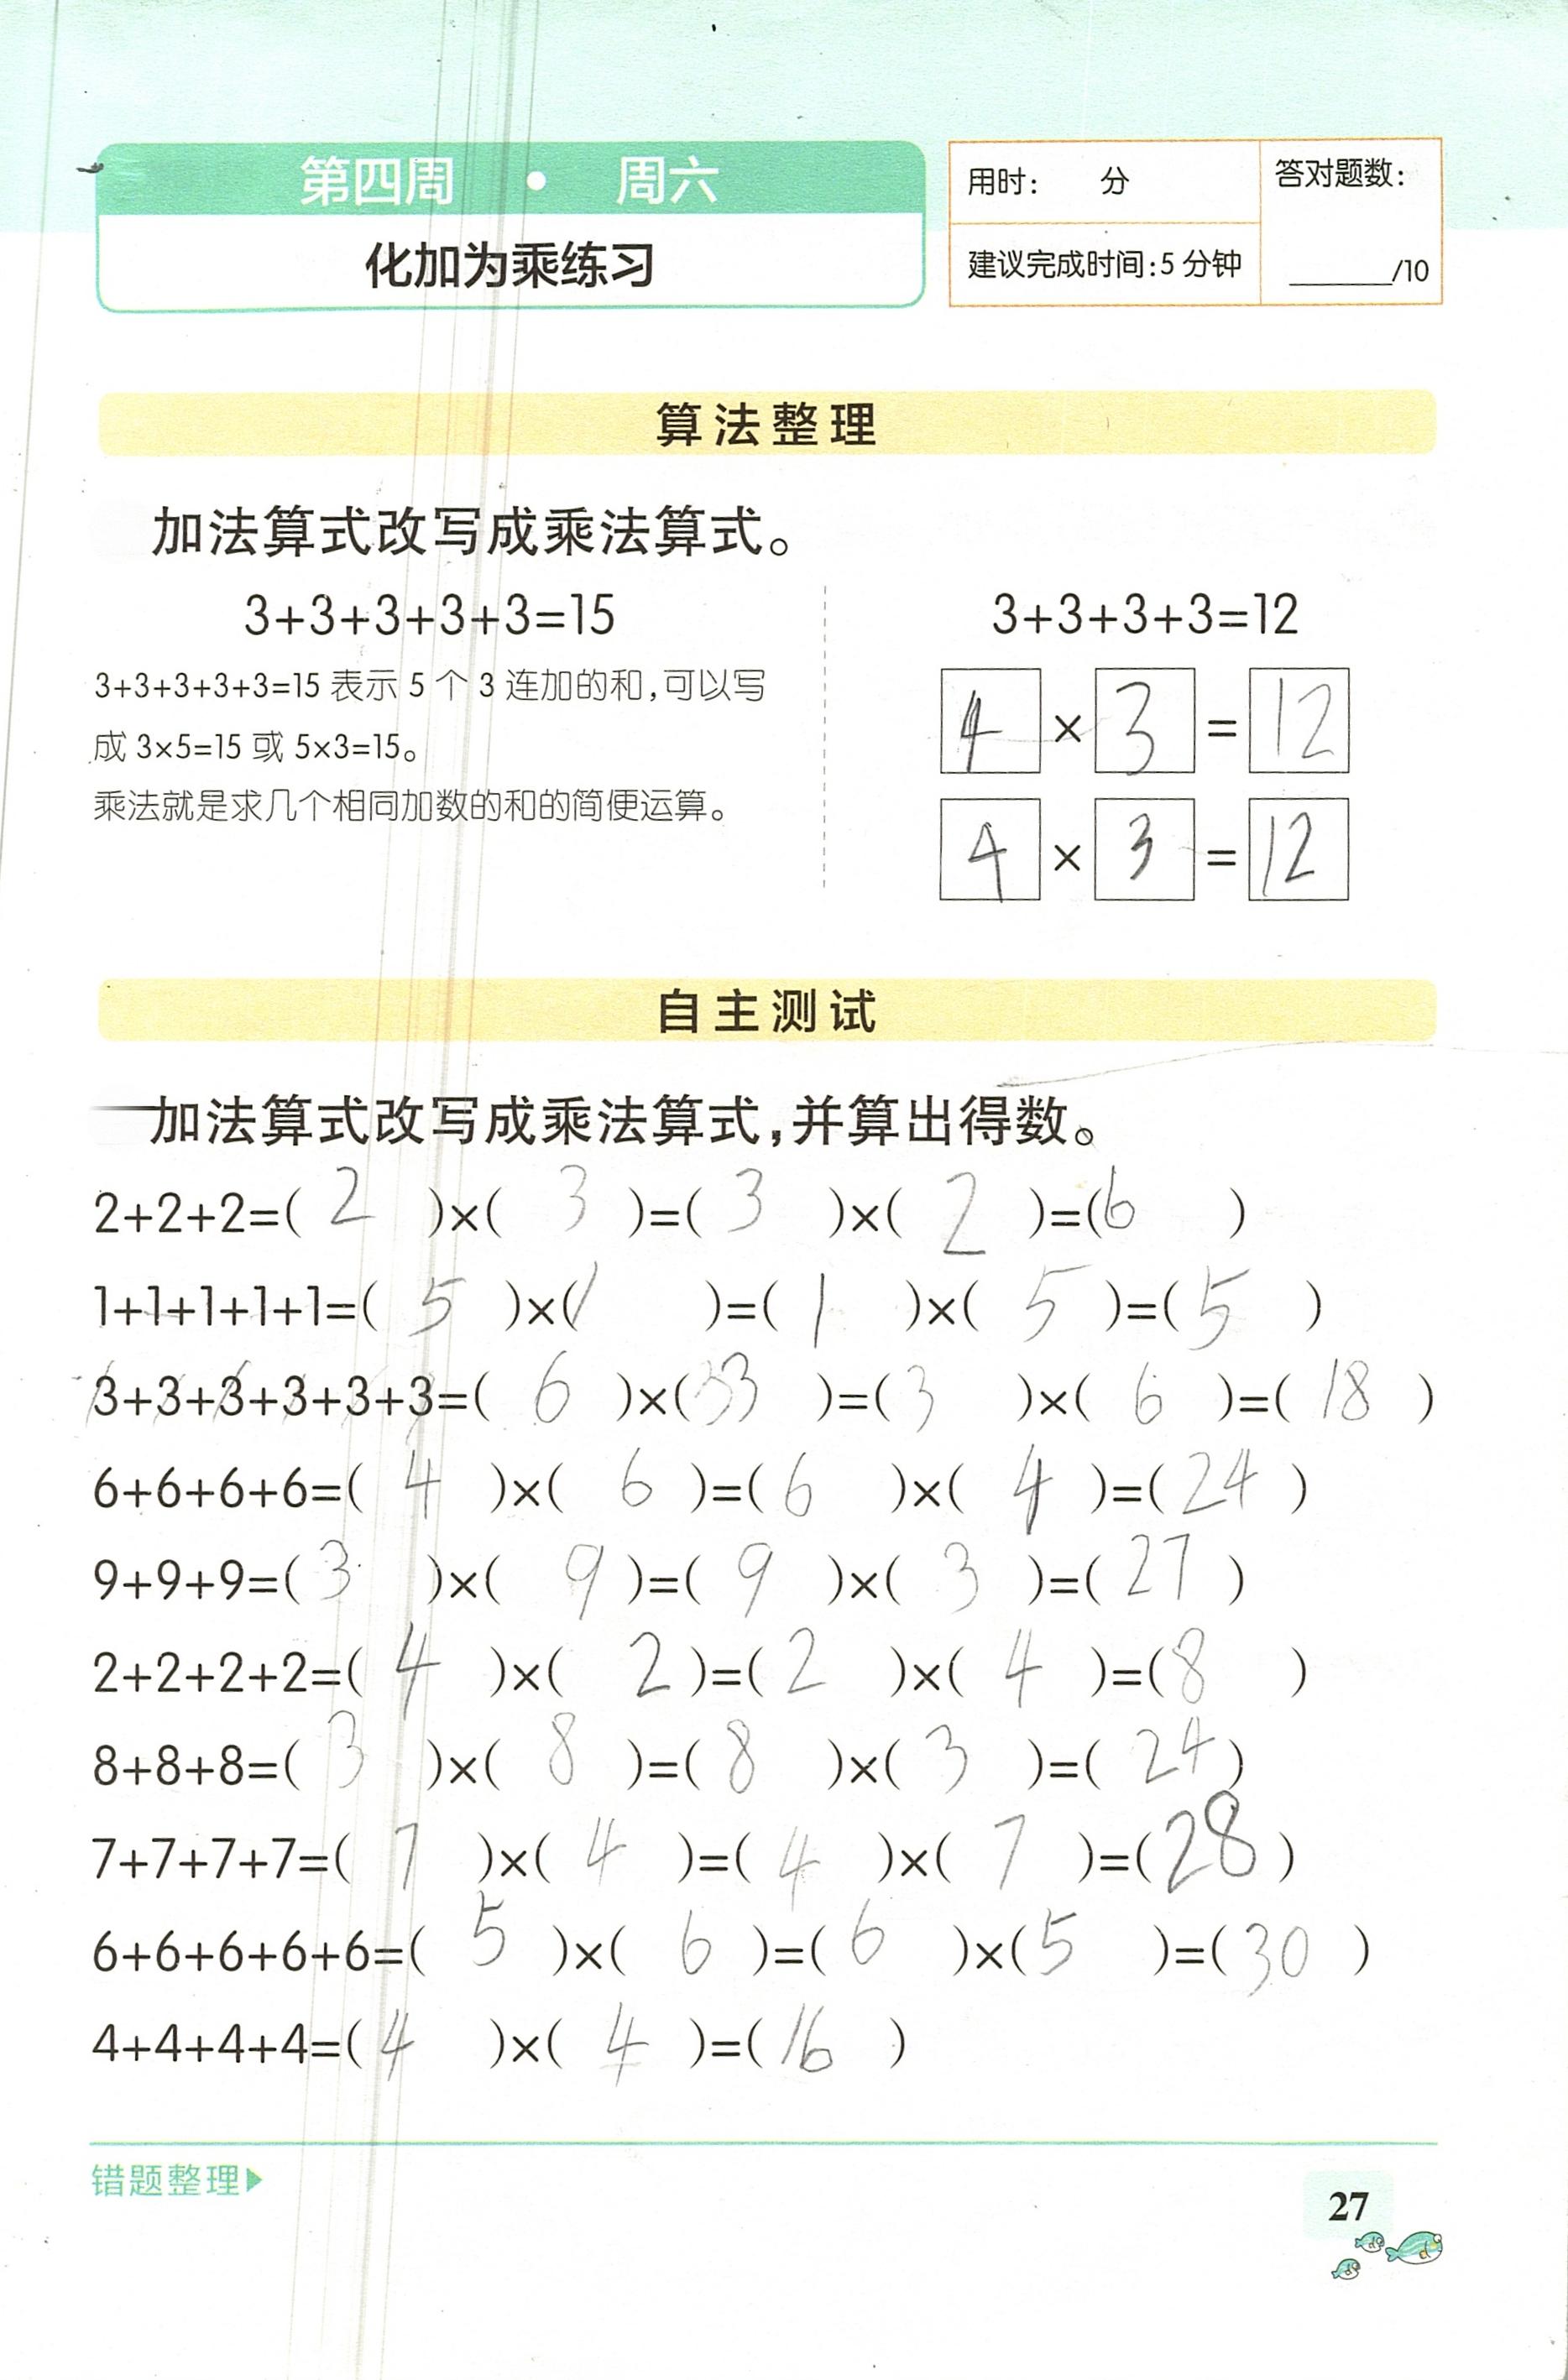 第四周 · 周六
用时: 分
答对题数:
化加为乘练习
建议完成时间:5 分钟
______/10
算法整理
加法算式改写成乘法算式。
3+3+3+3+3=15
3+3+3+3+3=15 表示 5 个 3 连加的和,可以写
成 3×5=15 或 5×3=15。
乘法就是求几个相同加数的和的简便运算。
3+3+3+3=12
4 × 3 = 12
4 × 3 = 12
自主测试
加法算式改写成乘法算式,并算出得数。
2+2+2=( 2 )×( 3 )=( 3 )×( 2 )=( 6 )
1+1+1+1+1=( 5 )×( 1 )=( 1 )×( 5 )=( 5 )
3+3+3+3+3+3=( 6 )×( 33 )=( 3 )×( 6 )=( 18 )
6+6+6+6=( 4 )×( 6 )=( 6 )×( 4 )=( 24 )
9+9+9=( 3 )×( 9 )=( 9 )×( 3 )=( 27 )
2+2+2+2=( 4 )×( 2 )=( 2 )×( 4 )=( 8 )
8+8+8=( 3 )×( 8 )=( 8 )×( 3 )=( 24 )
7+7+7+7=( 7 )×( 4 )=( 4 )×( 7 )=( 28 )
6+6+6+6+6=( 5 )×( 6 )=( 6 )×( 5 )=( 30 )
4+4+4+4=( 4 )×( 4 )=( 16 )
错题整理▶
27